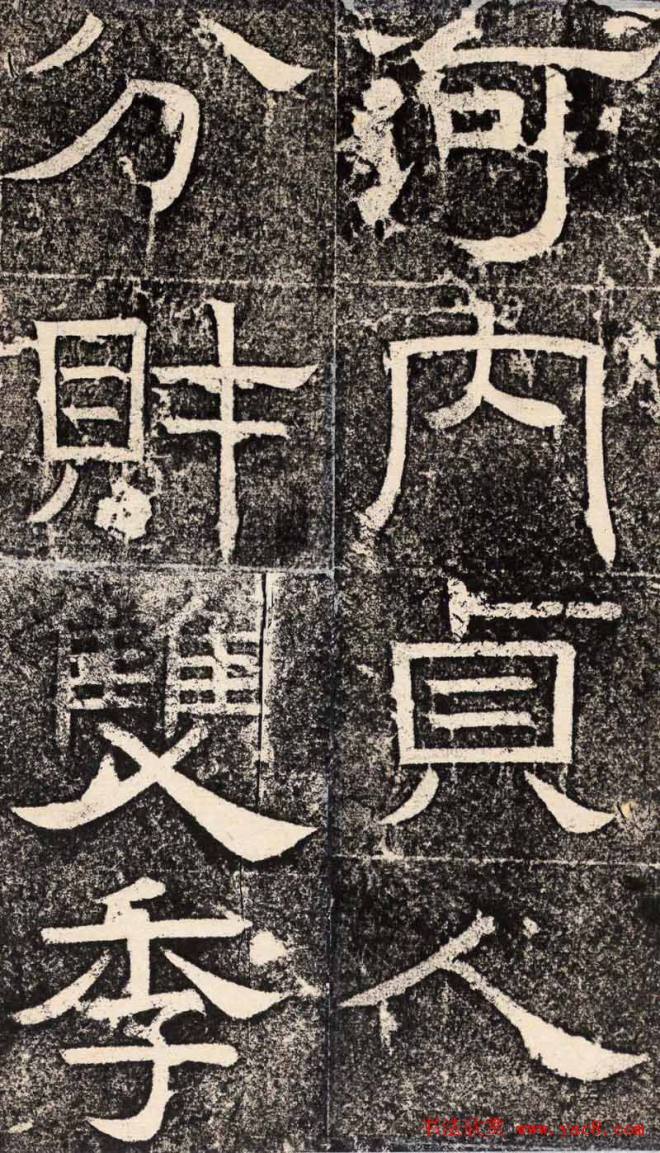 河内貞人
分財雙季
书法欣赏 www.yac8.com